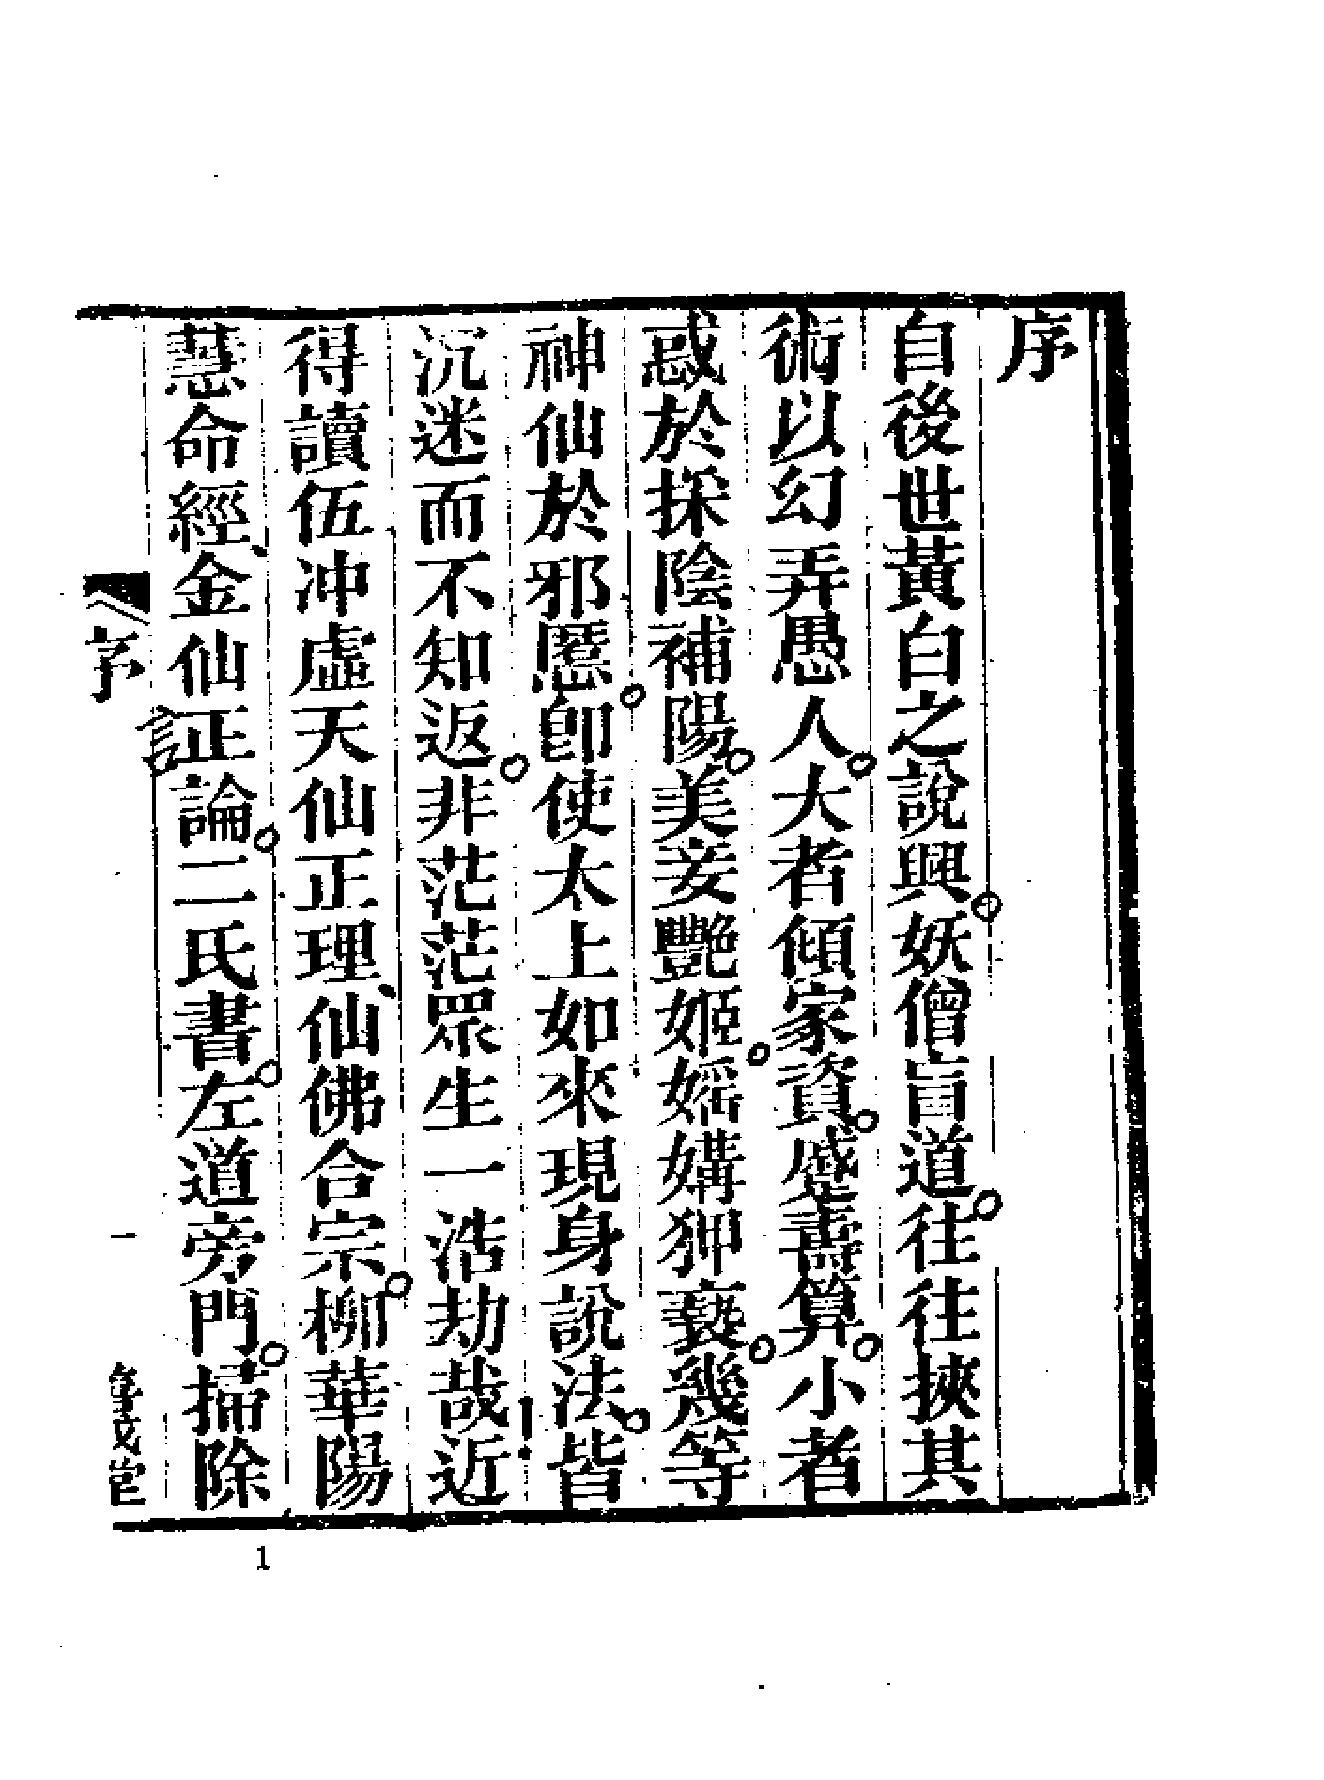 序
自後世黃白之說興。妖僧盲道。往往挾其
術以幻弄愚人。大者傾家資。蹙壽算。小者
惑於採陰補陽。美妾艷姬。婬媾狎褻。幾等
神仙於邪慝。卽使太上如來現身說法。皆
沉迷而不知返。非茫茫眾生一浩劫哉近
得讀伍冲虛天仙正理、仙佛合宗。柳華陽
慧命經、金仙正論。二氏書。左道旁門。掃除
言
序
一
1